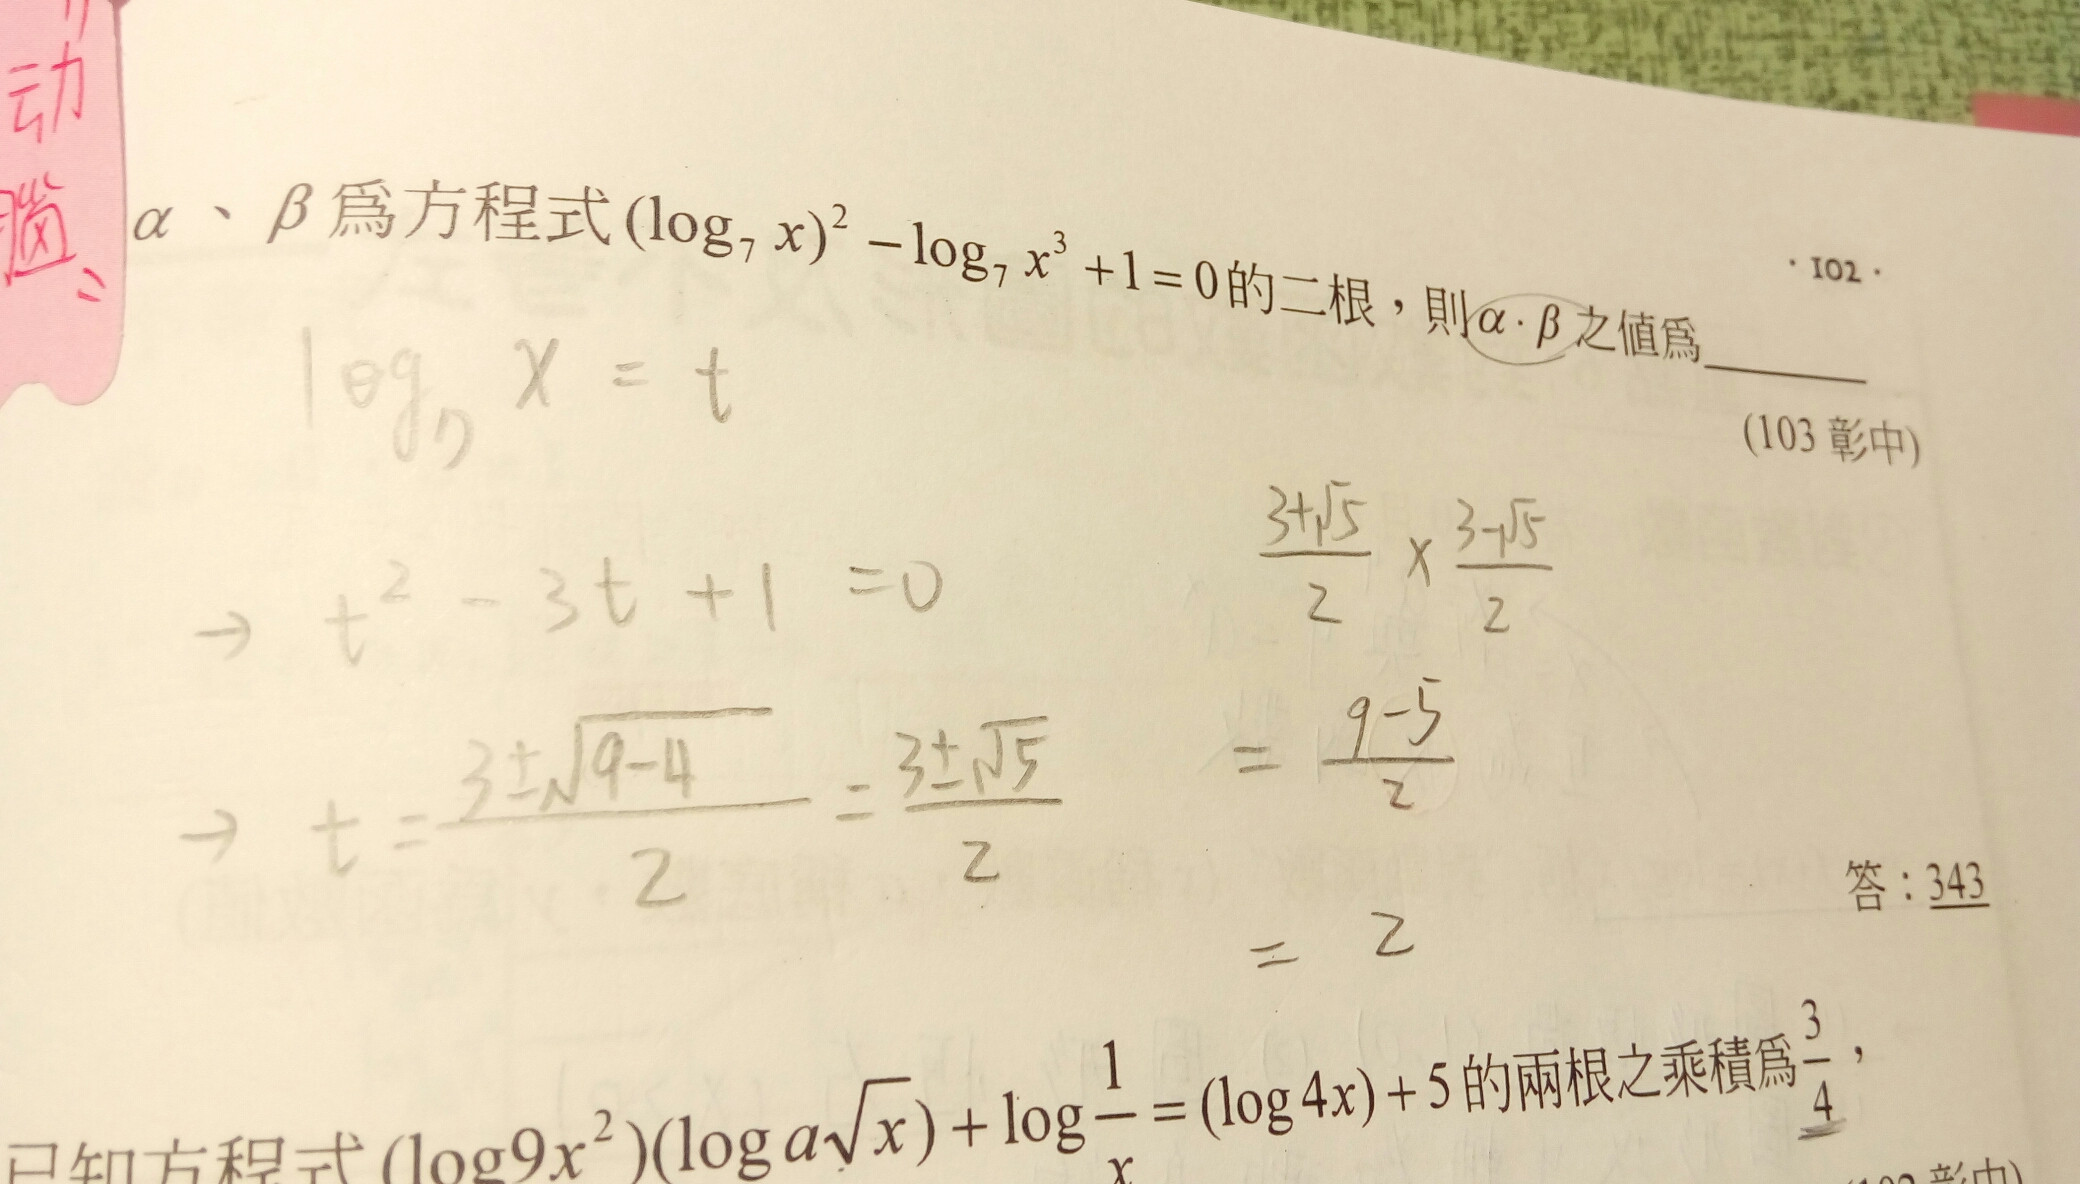 动
腦
α、β為方程式(log₇ x)² − log₇ x³ + 1 = 0的二根，則α·β之值為______
·102·
(103 彰中)
log₇ x = t
→ t² - 3t + 1 = 0
→ t = (3±√(9-4))/2 = (3±√5)/2
(3+√5)/2 × (3-√5)/2
= (9-5)/2
= 2
答：343
已知方程式(log9x²)(log a√x) + log 1/x = (log4x) + 5的兩根之乘積為3/4，
(102 彰中)